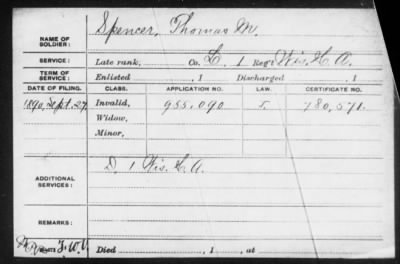 NAME OF SOLDIER: Spencer, Thomas M.
SERVICE: Late rank, Co. L. 1 Reg't Wis. H. A.
TERM OF SERVICE: Enlisted , 1 Discharged , 1
DATE OF FILING. CLASS. APPLICATION NO. LAW. CERTIFICATE NO.
1890, Sept. 27 Invalid, 955,090 780,571.
Widow,
Minor,
ADDITIONAL SERVICES: D. 1 Wis. H. A.
REMARKS:
Died , 1 , at